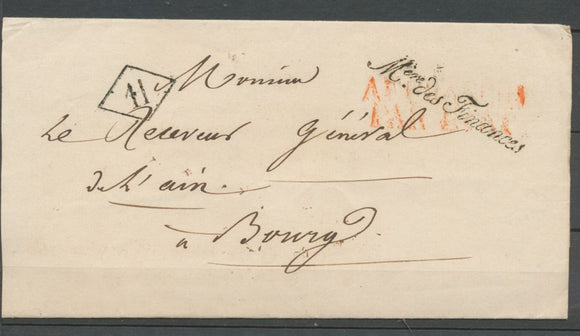 11
Mère des Finances
Monsieur
Le Receveur Général
de L'ain.
à Bourg